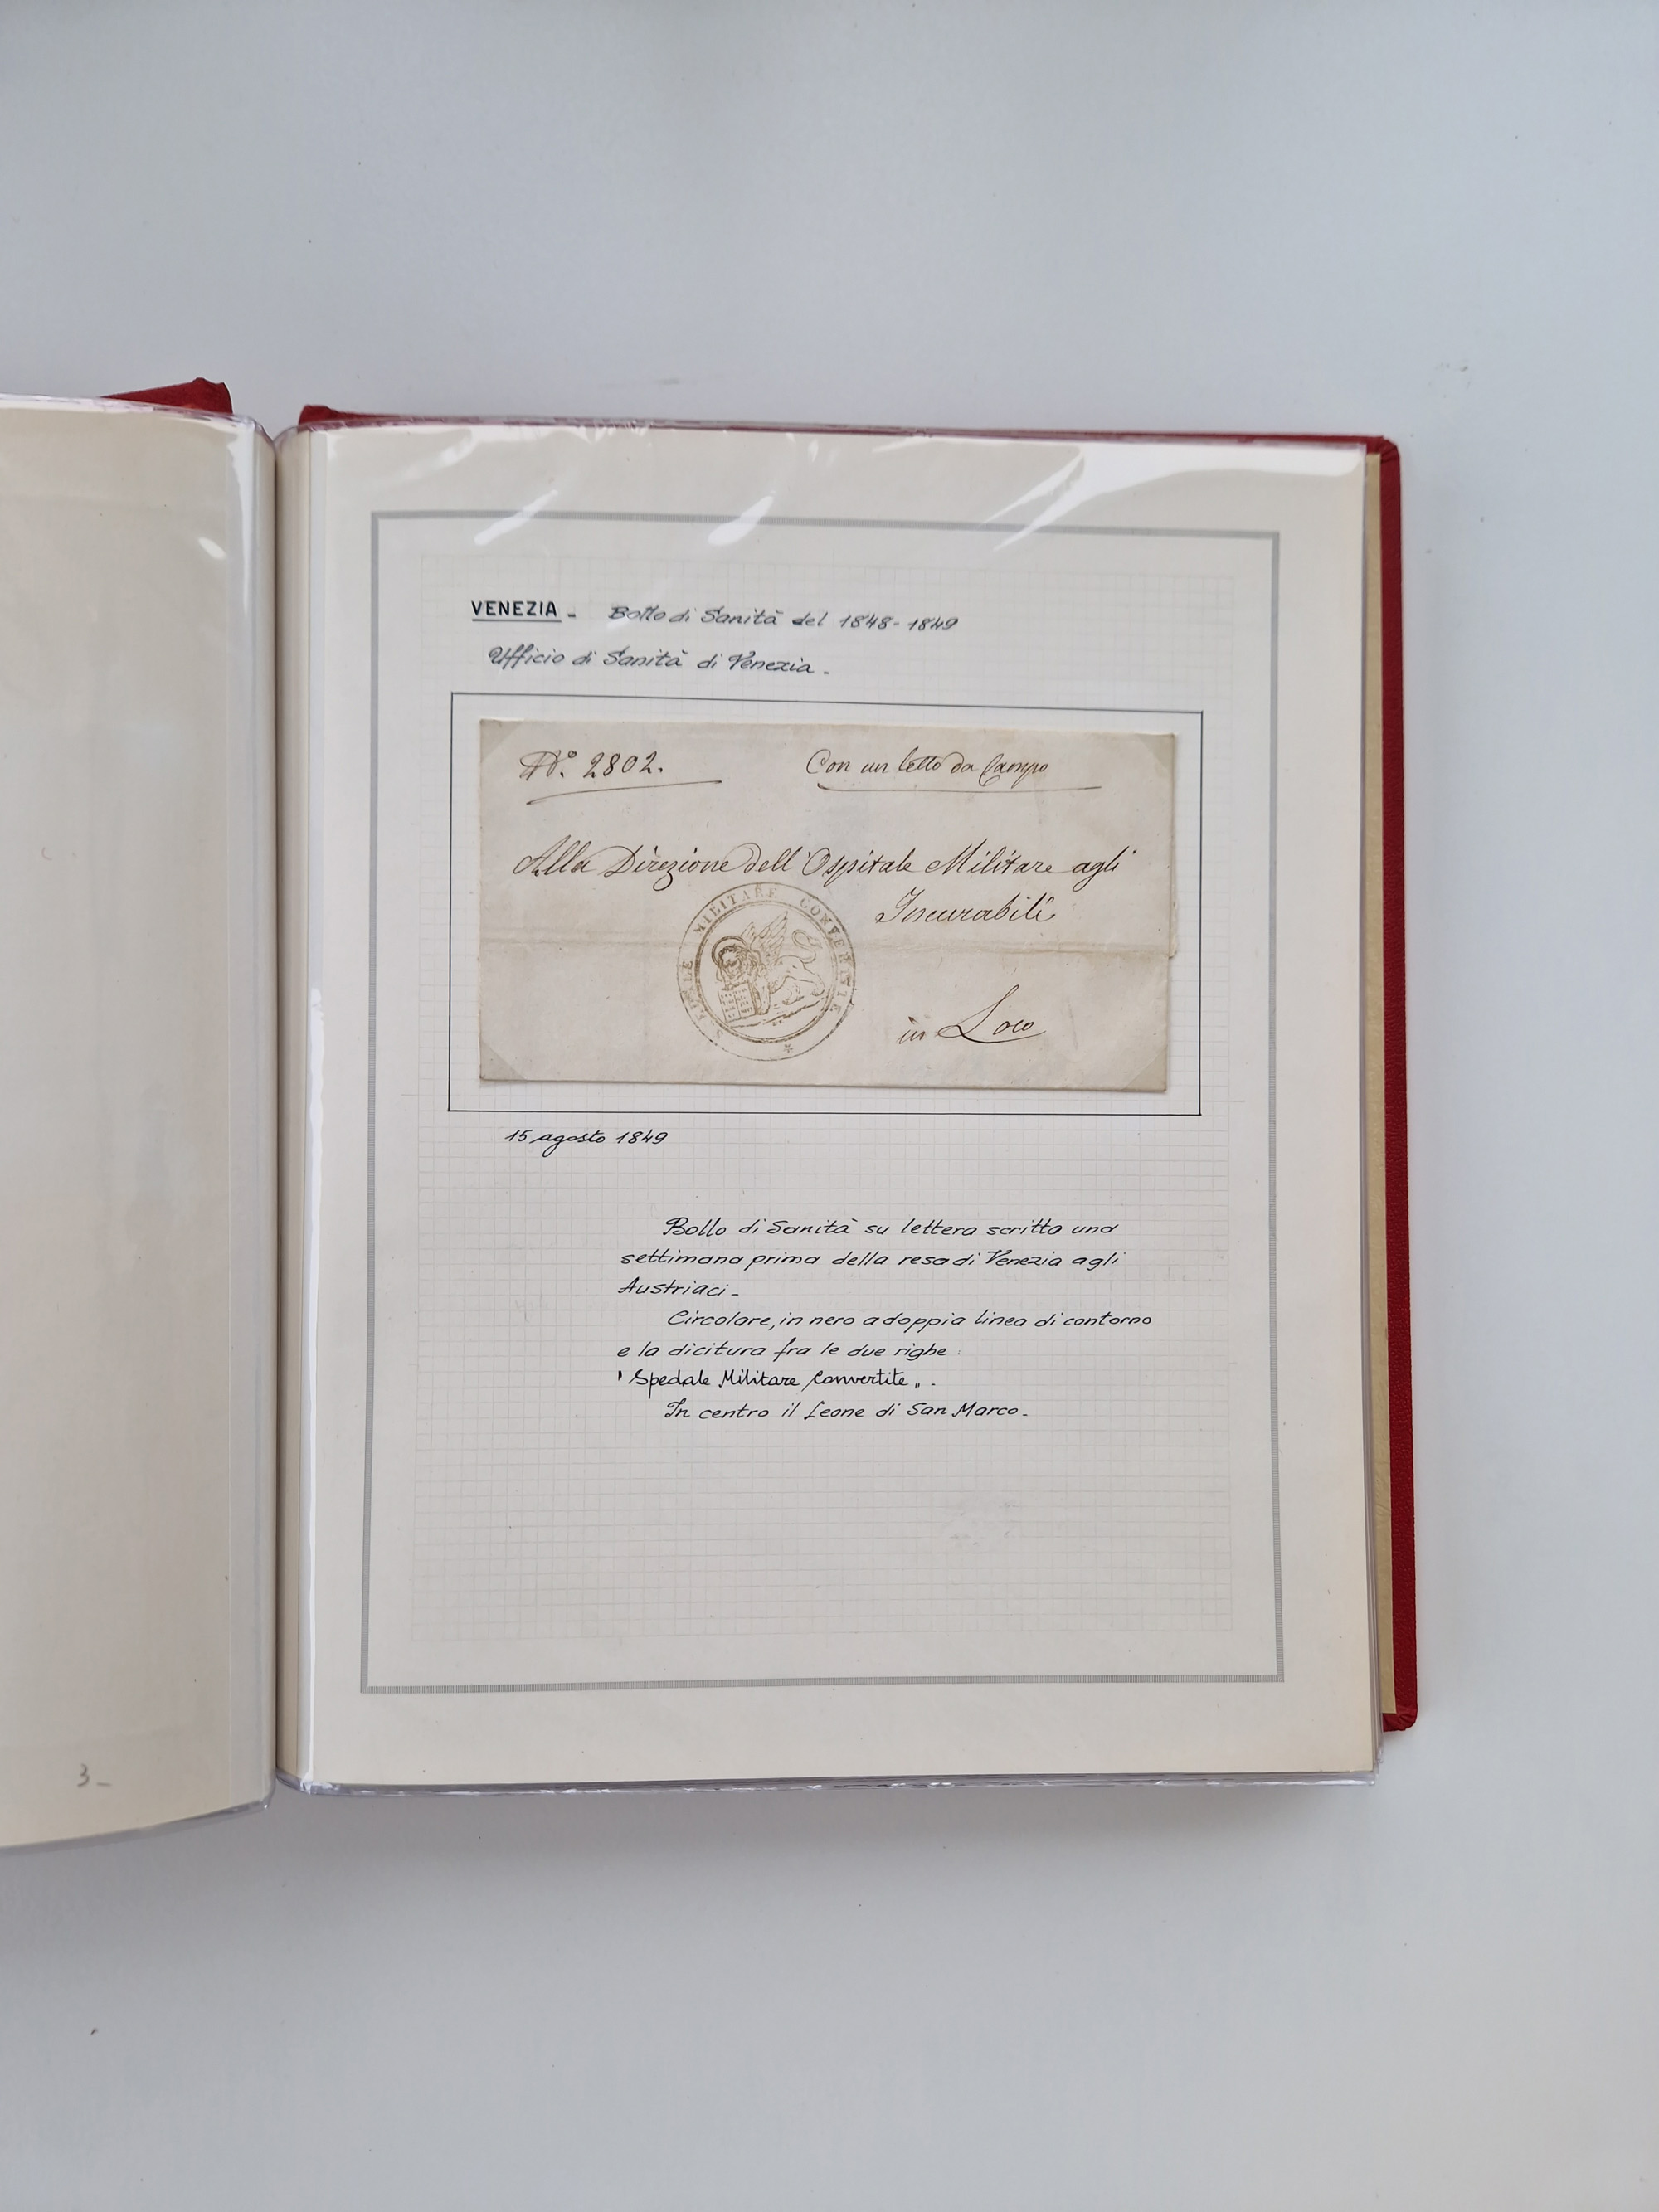 VENEZIA - Bollo di Sanità del 1848-1849
Ufficio di Sanità di Venezia -
N.° 2802.
Con un letto da Campo
Alla Direzione dell'Ospitale Militare agli
Incurabili
SPEDALE MILITARE CONVERTITE
in Loco
15 agosto 1849
Bollo di Sanità su lettera scritta una
settimana prima della resa di Venezia agli
Austriaci -
Circolare, in nero a doppia linea di contorno
e la dicitura fra le due righe :
" Spedale Militare Convertite " .
In centro il Leone di San Marco -
3 -